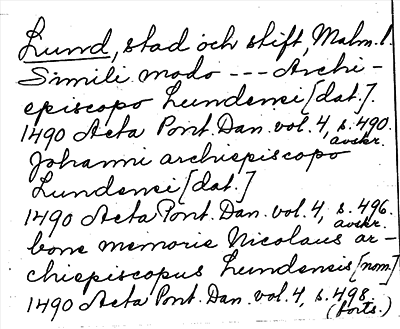 Lund, stad och stift, Malm. l.
Simili modo --- Archi-
episcopo Lundensi [dat.].
1490 Acta Pont. Dan. vol. 4, s. 490.
avskr.
Johanni archiepiscopo
Lundensi [dat.]
1490 Acta Pont. Dan. vol. 4, s. 496.
avskr.
bone memorie Nicolaus ar-
chiepiscopus Lundensis [nom.]
1490 Acta Pont. Dan. vol. 4, s. 498.
(forts.)